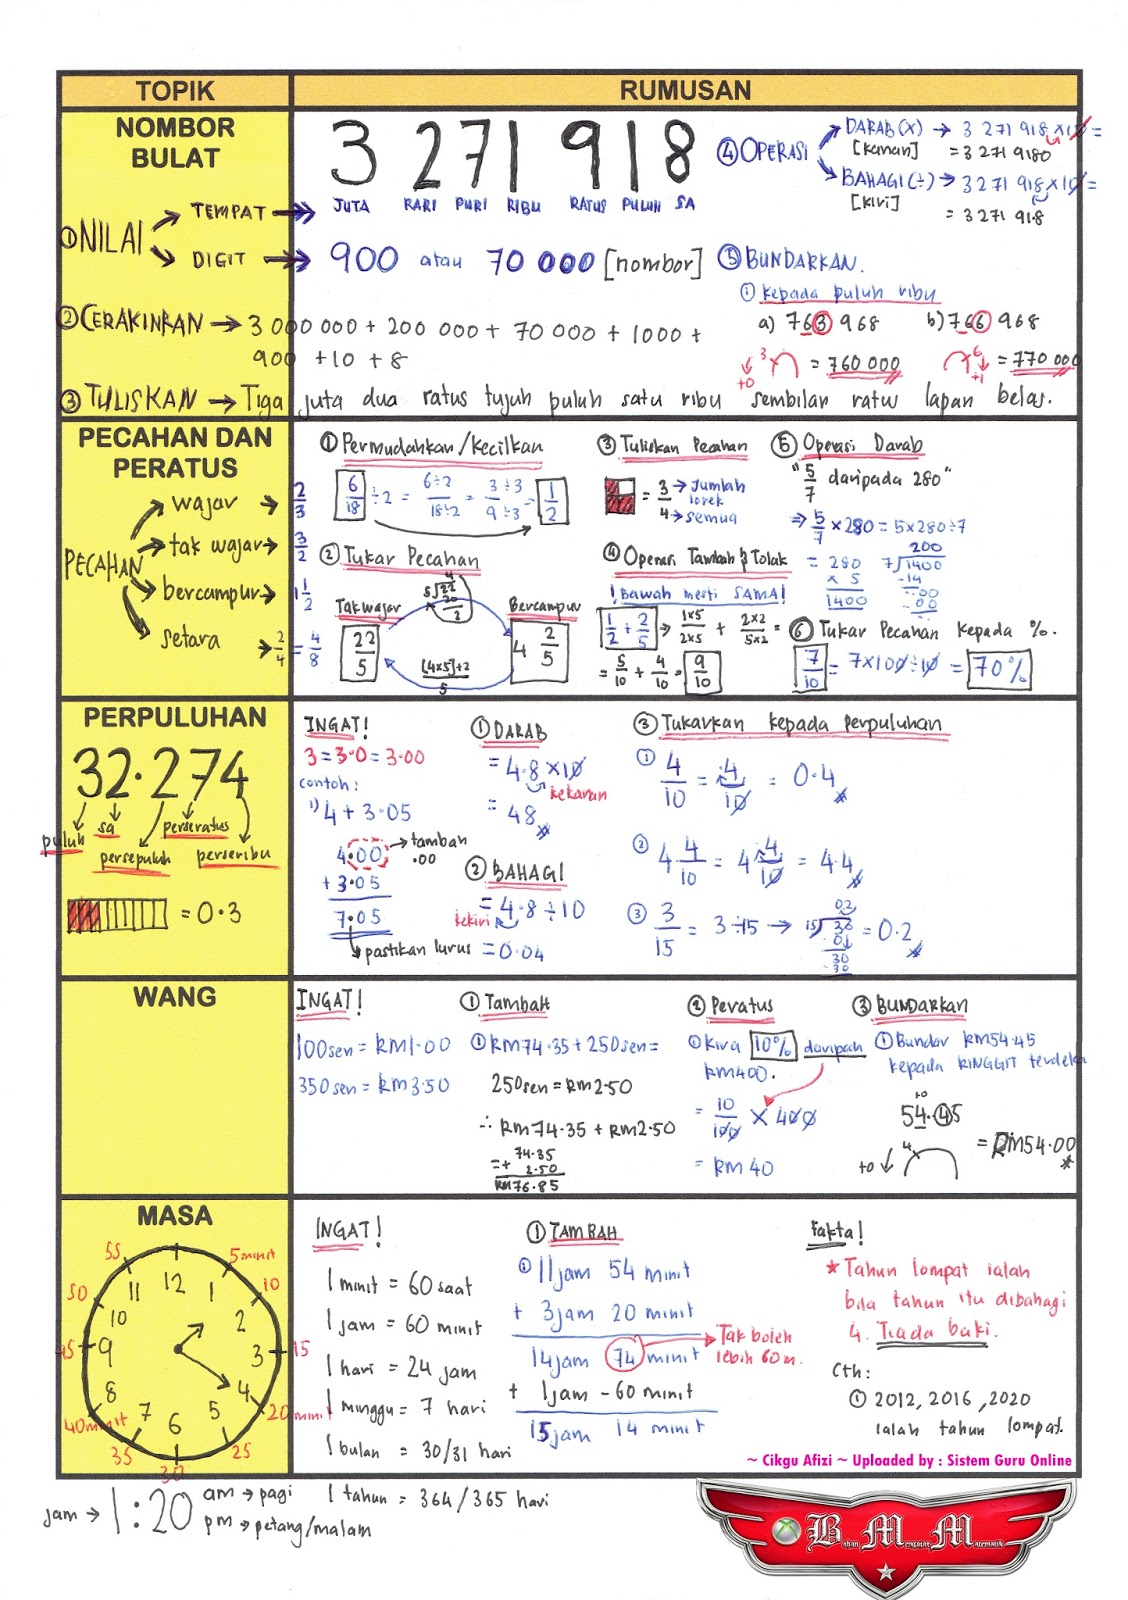 TOPIK
RUMUSAN
NOMBOR
BULAT
① NILAI
TEMPAT
DIGIT
3 271 918
JUTA RARI PURI RIBU RATUS PULUH SA
900 atau 70 000 [nombor]
② CERAKINKAN → 3 000 000 + 200 000 + 70 000 + 1000 +
900 + 10 + 8
③ TULISKAN → Tiga juta dua ratus tujuh puluh satu ribu sembilan ratus lapan belas.
④ OPERASI
DARAB (X) → 3 271 918 x 10 =
[kanan] = 3 271 9180
BAHAGI (÷) → 3 271 918 x 10 =
[kiri]
= 3 271 91.8
⑤ BUNDARKAN.
① kepada puluh ribu
a) 763 968
3
+0
= 760 000
b) 766 968
6
+1
= 770 000
PECAHAN DAN
PERATUS
PECAHAN
wajar → 2/3
tak wajar → 3/2
bercampur → 1 1/2
setara → 2/4 = 4/8
① Permudahkan/Kecilkan
6/18 ÷2 = 6÷2/18÷2 = 3÷3/9÷3 = 1/2
② Tukar Pecahan
Tak wajar
22/5
4
5√22
20
2
Bercampur
4 2/5
[4x5]+2/5
③ Tuliskan Pecahan
= 3/4
→ Jumlah
lorek
→ semua
④ Operasi Tambah & Tolak
! Bawah mesti SAMA!
1/2 + 2/5 → 1x5/2x5 + 2x2/5x2 =
= 5/10 + 4/10 = 9/10
⑤ Operasi Darab
"5/7 daripada 280"
⇒ 5/7 x 280 = 5 x 280 ÷ 7
= 280
x 5
1400
200
7√1400
-14
00
-00
⑥ Tukar Pecahan kepada %.
7/10 = 7 x 100 ÷ 10 = 70%
PERPULUHAN
32.274
puluh
sa
persepuluh
perseratus
perseribu
= 0.3
INGAT!
3 = 3.0 = 3.00
contoh:
1) 4 + 3.05
4.00
→ tambah
.00
+ 3.05
7.05
pastikan lurus
① DARAB
= 4.8 x 10
kekanan
= 48
② BAHAGI
= 4.8 ÷ 10
kekiri
= 0.04
③ Tukarkan kepada perpuluhan
① 4/10 = .4/10 = 0.4
② 4 4/10 = 4 .4/10 = 4.4
③ 3/15 = 3 ÷ 15 → 15√30 = 0.2
0.2
30
-30
WANG
INGAT!
100sen = RM1.00
350sen = RM3.50
① Tambah
① RM74.35 + 250sen =
250sen = RM2.50
∴ RM74.35 + RM2.50
= 74.35
+ 2.50
RM76.85
② Peratus
① Kira 10% daripada
RM400.
= 10/100 x 400
= RM40
③ BUNDARKAN
① Bundar RM54.45
kepada RINGGIT terdeka
+0
54.45
4
+0
= RM54.00
MASA
12 1 2 3 4 5 6 7 8 9 10 11
5 minit
10
15
20 minit
25
30
35
40 minit
45
50
55
jam → 1:20
am → pagi
pm → petang/malam
INGAT!
1 minit = 60 saat
1 jam = 60 minit
1 hari = 24 jam
1 minggu = 7 hari
1 bulan = 30/31 hari
1 tahun = 364/365 hari
① TAMBAH
① 11 jam 54 minit
+ 3 jam 20 minit
14 jam 74 minit
Tak boleh
lebih 60 m.
+ 1 jam - 60 minit
15 jam 14 minit
Fakta!
* Tahun lompat ialah
bila tahun itu dibahagi
4. Tiada baki.
Cth:
① 2012, 2016, 2020
ialah tahun lompat.
~ Cikgu Afizi ~ Uploaded by : Sistem Guru Online
Bahan Mengajar Matematik